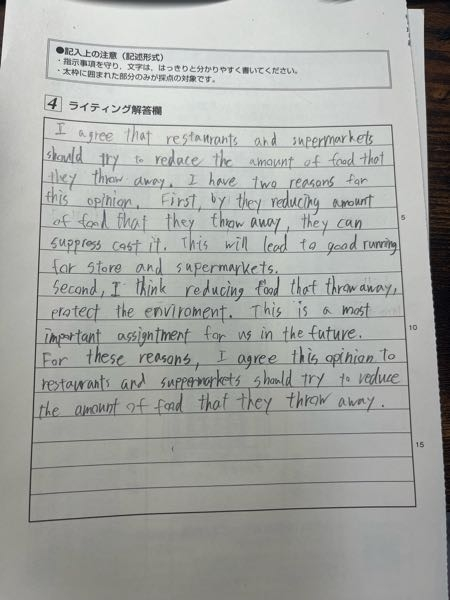 ●記入上の注意（記述形式）
・指示事項を守り、文字は、はっきりと分かりやすく書いてください。
・太枠に囲まれた部分のみが採点の対象です。
4 ライティング解答欄
I agree that restaurants and supermarkets
should try to reduce the amount of food that
they throw away. I have two reasons for
this opinion. First, by they reducing amount
of food that they throw away, they can
5
suppress cast it. This will lead to good running
for store and supermarkets.
Second, I think reducing food that throw away,
protect the enviroment. This is a most
important assigntment for us in the future.
10
For these reasons, I agree this opinion to
restaurants and suppermarkets should try to reduce
the amount of food that they throw away.
15